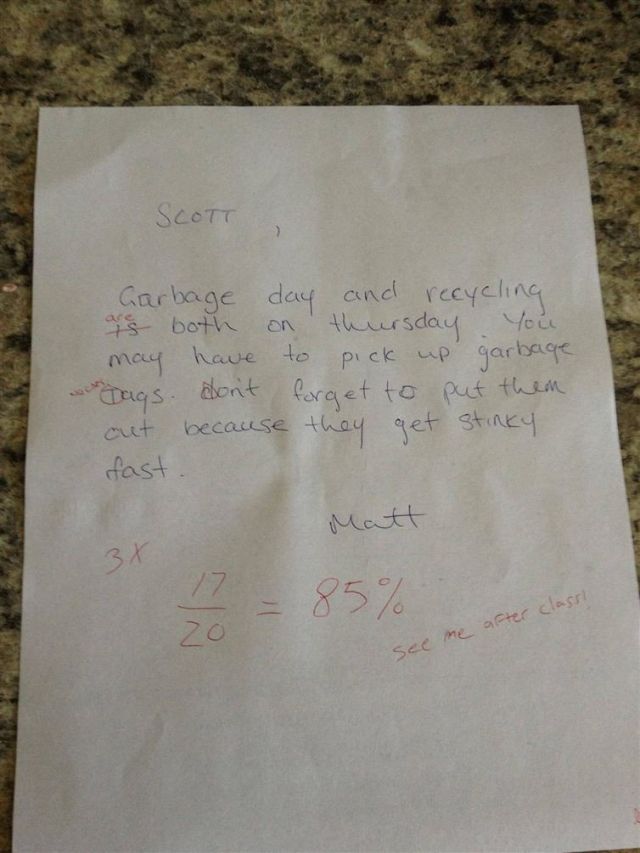 SCOTT ,
Garbage day and recycling
are
is both on thursday. You
may have to pick up garbage
no cap
Tags. dont forget to put them
out because they get stinky
fast.
Matt
3X
17
20 = 85%
see me after class!